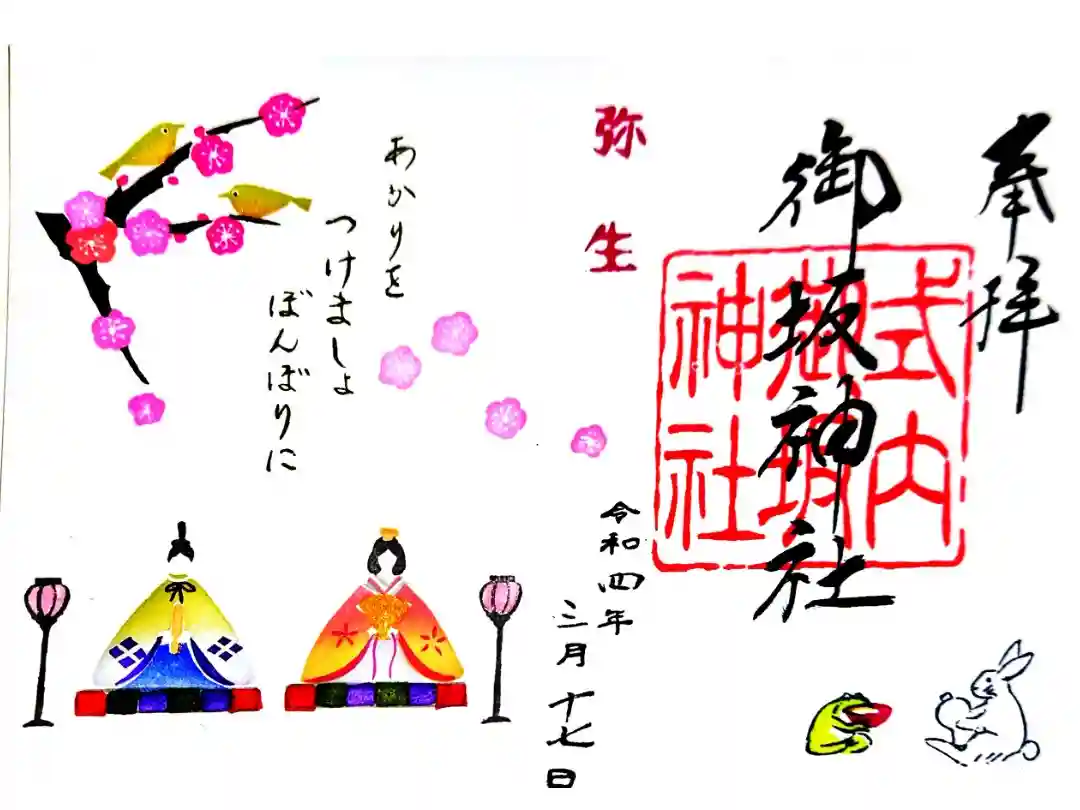 奉拝
御坂神社
式内
御坂
神社
弥生
令和四年
三月十七日
あかりを
つけましょ
ぼんぼりに